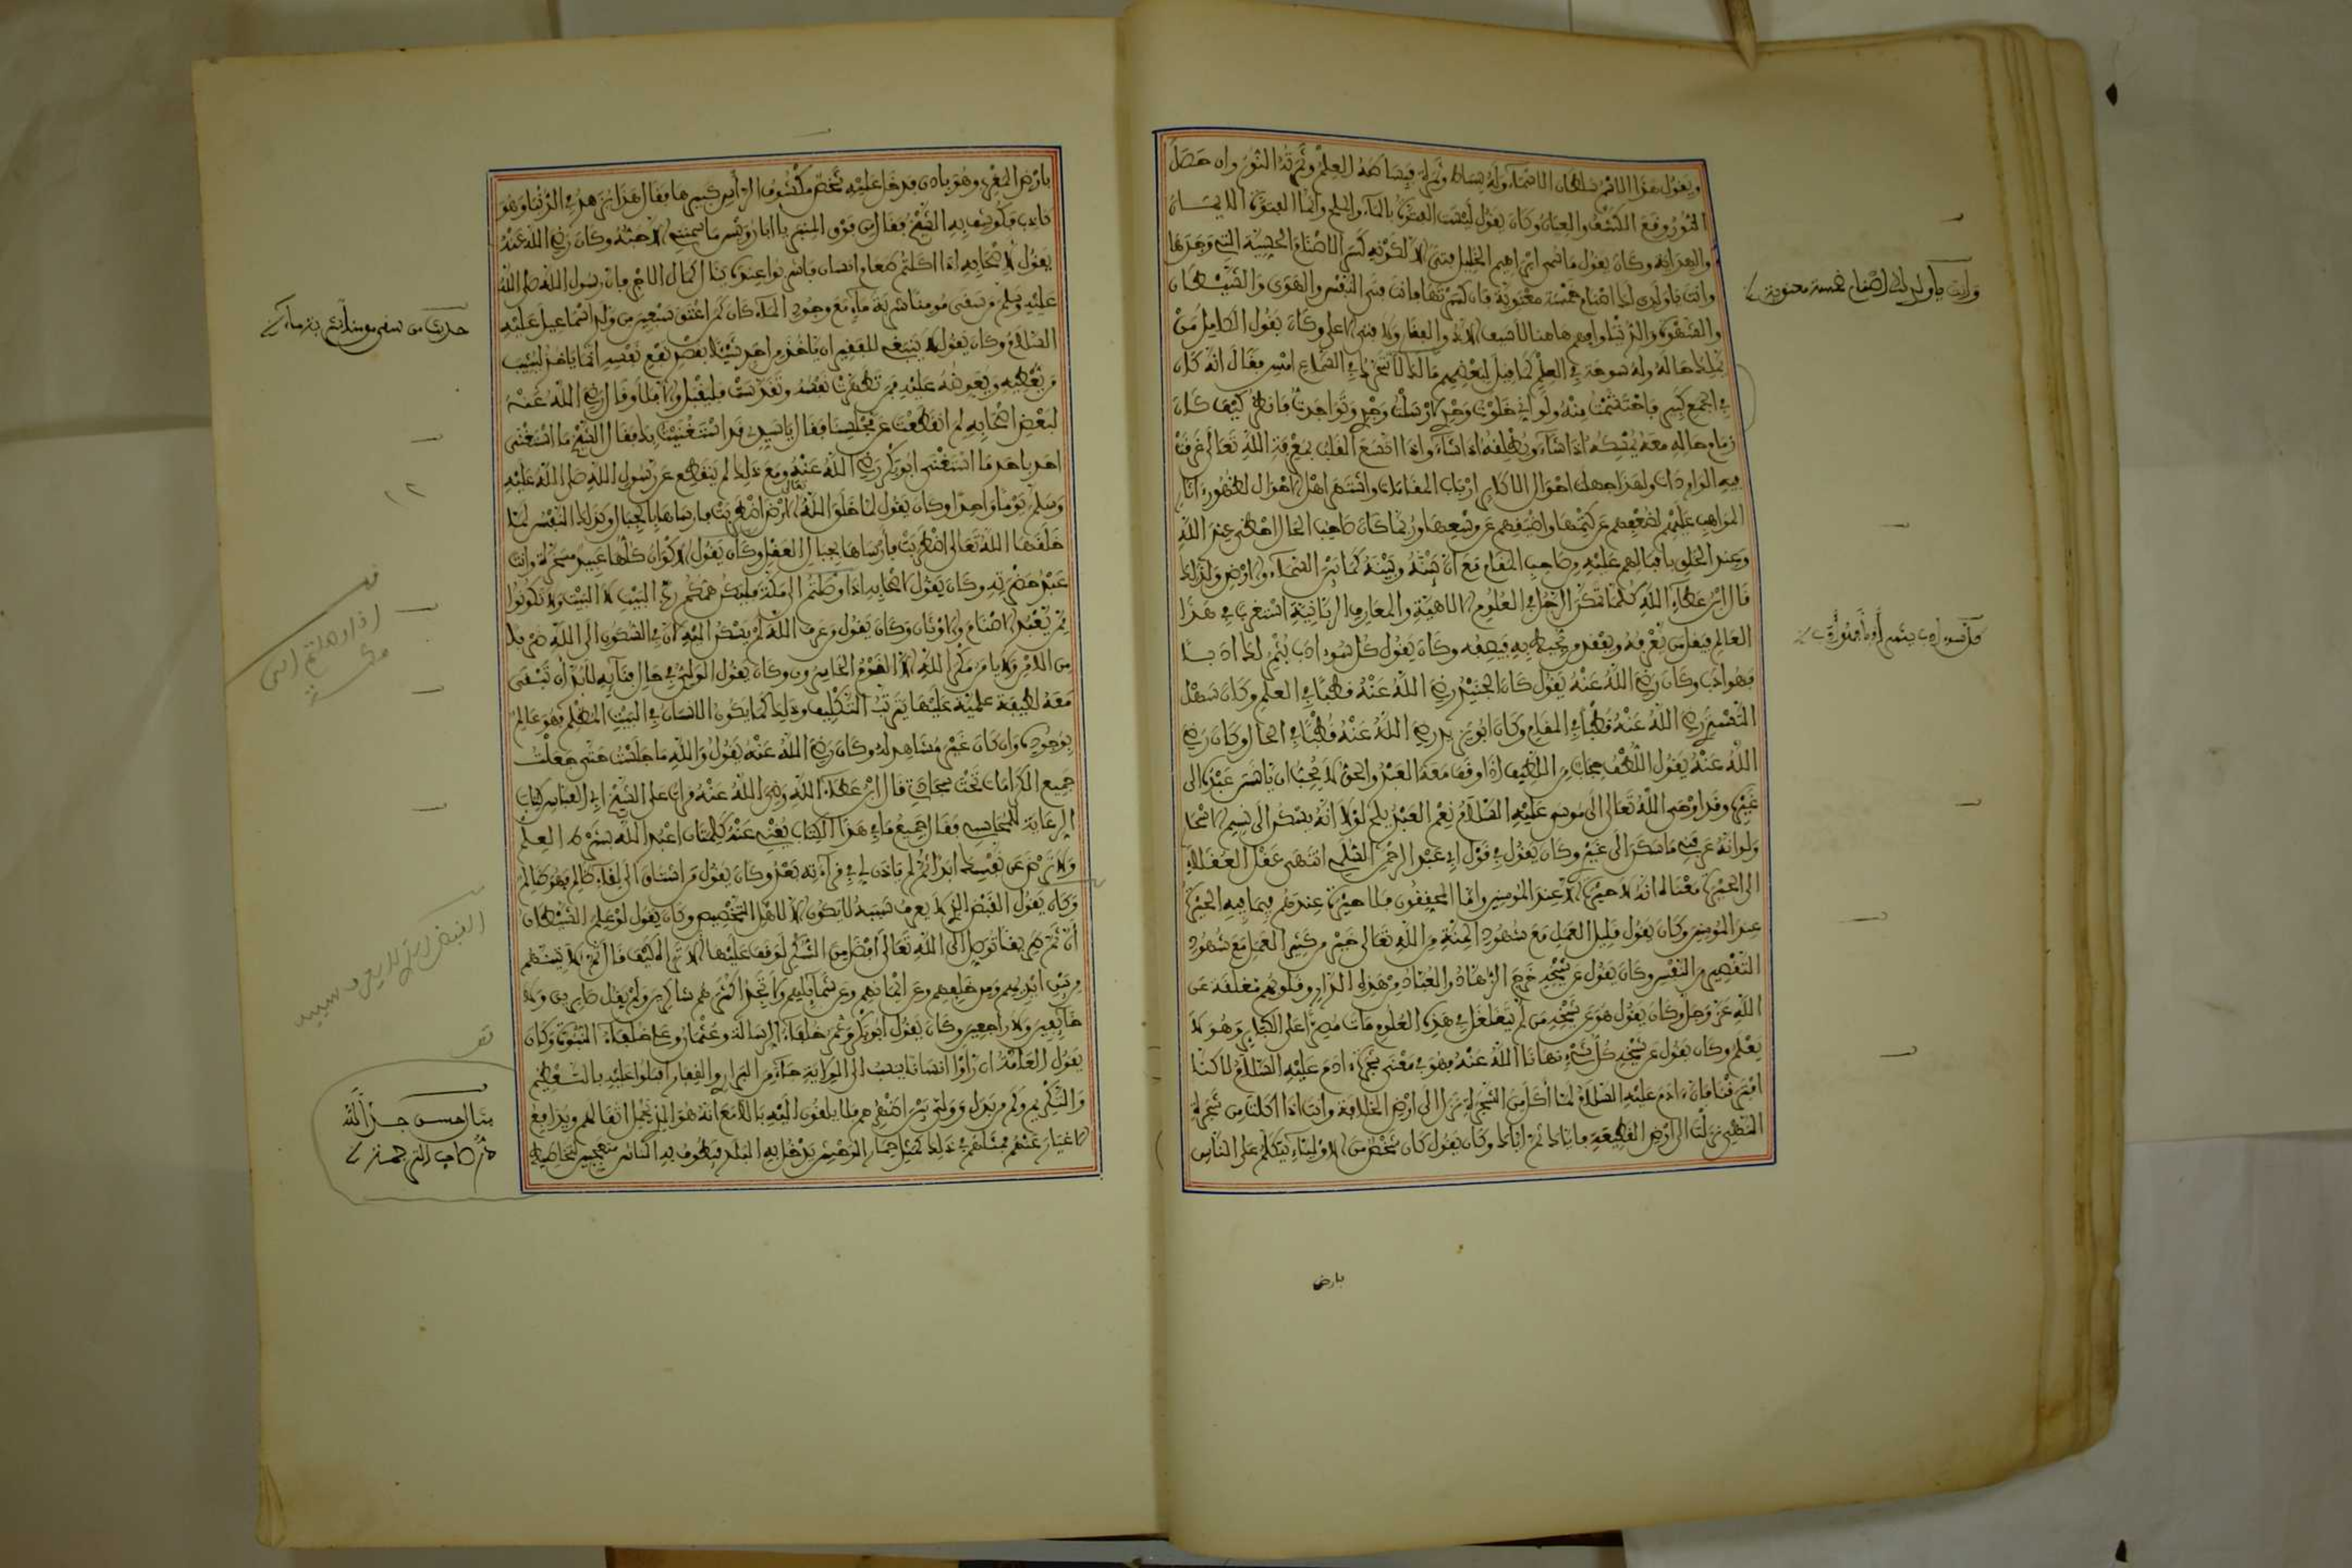 ويقول هذا الاسم سلطان الاسماء وله بساط وثمرة فبساطه العلم وثمرته النور وان حصل
النور وقع الكشف والعيان وكان يقول ليست الفتوة بالماء والملح وانما الفتوة الايمان
والهداية وكان يقول ما سمى ابراهيم الخليل فتى الا لكونه كسر الاصنام الحسية التي وجدها
وانت يا ولدي لك اصنام خمسة معنوية فان كسرتها فانت فتى النفس والهوى والشيطان
والشهوة والدنيا وافهم هاهنا لا سيف الا ذو الفقار ولا فتى الا علي وكان يقول الكامل من
يملك حاله وله سوحة في العلم كما قيل لبعضهم مالك لا تتحرك في السماع امس فقال انه كان
في الجمع كبير فاحتشمت منه ولو اني خلوت وحدي ارسلت وجدي وتواجدت فانظر كيف كان
زمام حاله معه يمسكه اذا شاء ويطلقه اذا شاء واذا اتسع القلب بمعرفة الله تعالى غرقت
فيه الواردات ولهذا جهلت احوال الاكابر ارباب المقامات واشتهر اهل الاحوال لظهور اثار
المواهب عليهم لضعفهم عن كتمها ولضيقهم عن وسعها وربما كان صاحب الحال احظى عند الله
وعند الخلق باقبالهم عليه من صاحب المقام مع ان بينه وبينه كما بين السماء والارض ولذلك
قال ابن عطاء الله كلما تمكن الرجل في العلوم الالهية والمعارف الربانية استغرب في هذا
العالم فيقل من يعرفه ويفقد من يحيط به فيصفه وكان يقول كل سوء ادب يثمر لك ادبا
فهو ادب وكان رضي الله عنه يقول كان الجنيد رضي الله عنه قطبا في العلم وكان سهل
التستري رضي الله عنه قطبا في المقام وكان ابو يزيد رضي الله عنه قطبا في الحال وكان رضي
الله عنه يقول اللطف حجاب من اللطيف اذا وقف معه العبد والحق لا يحب ان ياشر عبده الى
غيره وقد اوحى الله تعالى الى موسى عليه السلام نعم العبد بلخ لولا انه يسكن الى نسيم الاسحار
ولو انه عرفني ما سكن الى غيري وكان يقول في قول ابي عبد الرحمن السلمي انتهى عقل العقلاء
الى الحيرة معناه انه لا حيرة الا عند المؤمنين واما المحققون فلا حيرة عندهم فيما فيه الحيرة
عند المؤمنين وكان يقول قليل العمل مع شهود المنة من الله تعالى خير من كثير العمل مع شهود
التقصير من النفس وكان يقول عن شيخه خرج الزهاد والعباد من هذه الدار وقلوبهم مغلقة عن
الله عز وجل وكان يقول هو عن شيخه من لم يتغلغل في هذه العلوم مات مصرا على الكبائر وهو لا
يعلم وكان يقول عن شيخه كل شيء نهانا الله عنه فهو في معنى شجرة ادم عليه السلام لاكنا
افترقنا فان ادم عليه السلام لما اكل من الشجرة نزل الى ارض الخلافة وانت اذا اكلت من شجرة
النهي نزلت الى ارض القطيعة فاياك ثم اياك وكان يقول كان شخص من الاولياء يتكلم على الناس
بارض
وانت يا ولدي لك اصنام خمسة معنوية
كل سوء ادب يثمر ادبا فهو ادب
بارض المغرب وهو بادن فدخل عليه شخص مكشوف الراس كبيرها فقال هذا يزهد في الدنيا وهو
كاذب فكوشف به الشيخ فقال من فوق المنبر يا ابا رويس ما سمنني الا حبه وكان رضي الله عنه
يقول لاصحابه اذا اكلتم طعاما وانسان فاشربوا عنده ينال كمال الاجر فان رسول الله صلى الله
عليه وسلم من سقى مومنا شربة ماء مع وجود الماء كان كمن اعتق سبعين من ولد اسماعيل عليه
السلام وكان يقول لا ينبغي للفقير ان ياخذ من احد شيئا بقصد نفع نفسه انما ياخذ ليثيب
من يعطيه ويعوضه عليه فمن تطهرت نفسه وتقدست فليقبل والا فلا وقال رضي الله عنه
لبعض اصحابه لم انقطعت عن مجلسنا فقال يا سيدي قد استغنيت بك فقال الشيخ ما استغنى
احد باحد ما استغنى ابو بكر رضي الله عنه ومع ذلك لم ينقطع عن رسول الله صلى الله عليه
وسلم يوما واحدا وكان يقول لما خلق الله تعالى الارض اضطربت فارساها بالجبال وكذلك النفس لما
خلقها الله تعالى اضطربت فارساها بجبال العقل وكان يقول الاكوان كلها عبيد مسخرة وانت
عبد حضرته وكان يقول لاصحابه اذا وصلتم الى مكة فليكن همكم رب البيت لا البيت ولا تكونوا
ممن يعبد الاصنام والاوثان وكان يقول من عرف الله لم يسكن اليه لان في السكون الى الله ضربا
من الامن ولا يامن مكر الله الا القوم الخاسرون وكان يقول الولي في حال فنائه لا بد ان تبقى
معه لطيفة علمية عليها يترتب التكليف وذلك كما يكون الانسان في البيت المظلم فهو عالم
بوجوده وان كان غير مشاهد له وكان رضي الله عنه يقول والله ما جلست حتى جعلت
جميع الكرامات تحت سجادتي قال ابن عطاء الله رضي الله عنه قرات على الشيخ ابي العباس كتاب
الرعاية للمحاسبي فقال جميع ما في هذا الكتاب يغني عنه كلمتان اعبد الله بشرط العلم
ولا ترض عن نفسك ابدا ثم لم ياذن لي في قراءته بعد وكان يقول من اشتاق الى لقاء ظالم فهو ظالم
وكان يقول القبض الذي لا يعرف سببه لا يكون الا لاهل التخصيص وكان يقول لو علم الشيطان
ان ثم طريقا توصل الى الله تعالى افضل من الشكر لوقف عليها الا تراه كيف قال ثم لاتينهم
من بين ايديهم ومن خلفهم وعن ايمانهم وعن شمائلهم ولا تجد اكثرهم شاكرين ولم يقل صابرين ولا
خائفين ولا راجين وكان يقول ابو بكر وعمر خلفاء الرسالة وعثمان وعلي خلفاء النبوة وكان
يقول العامة ان راوا انسانا ينسب الى الولاية جاء من البراري والقفار اقبلوا عليه بالتعظيم
والتكريم وكم من بدل وولي بين اظهرهم فلا يلقون اليه بالا مع انه هو الذي يحمل اثقالهم ويدافع
الاغيار عنهم فمثلهم في ذلك كمثل حمار الوحش يدخل به البلد فيطوف به الناس متعجبين لتخاطيطه
حديث من سقى مومنا شربة ماء
١٢
قف
اذا وصلتم الى
مكة
القبض الذي لا يعرف سببه
قف